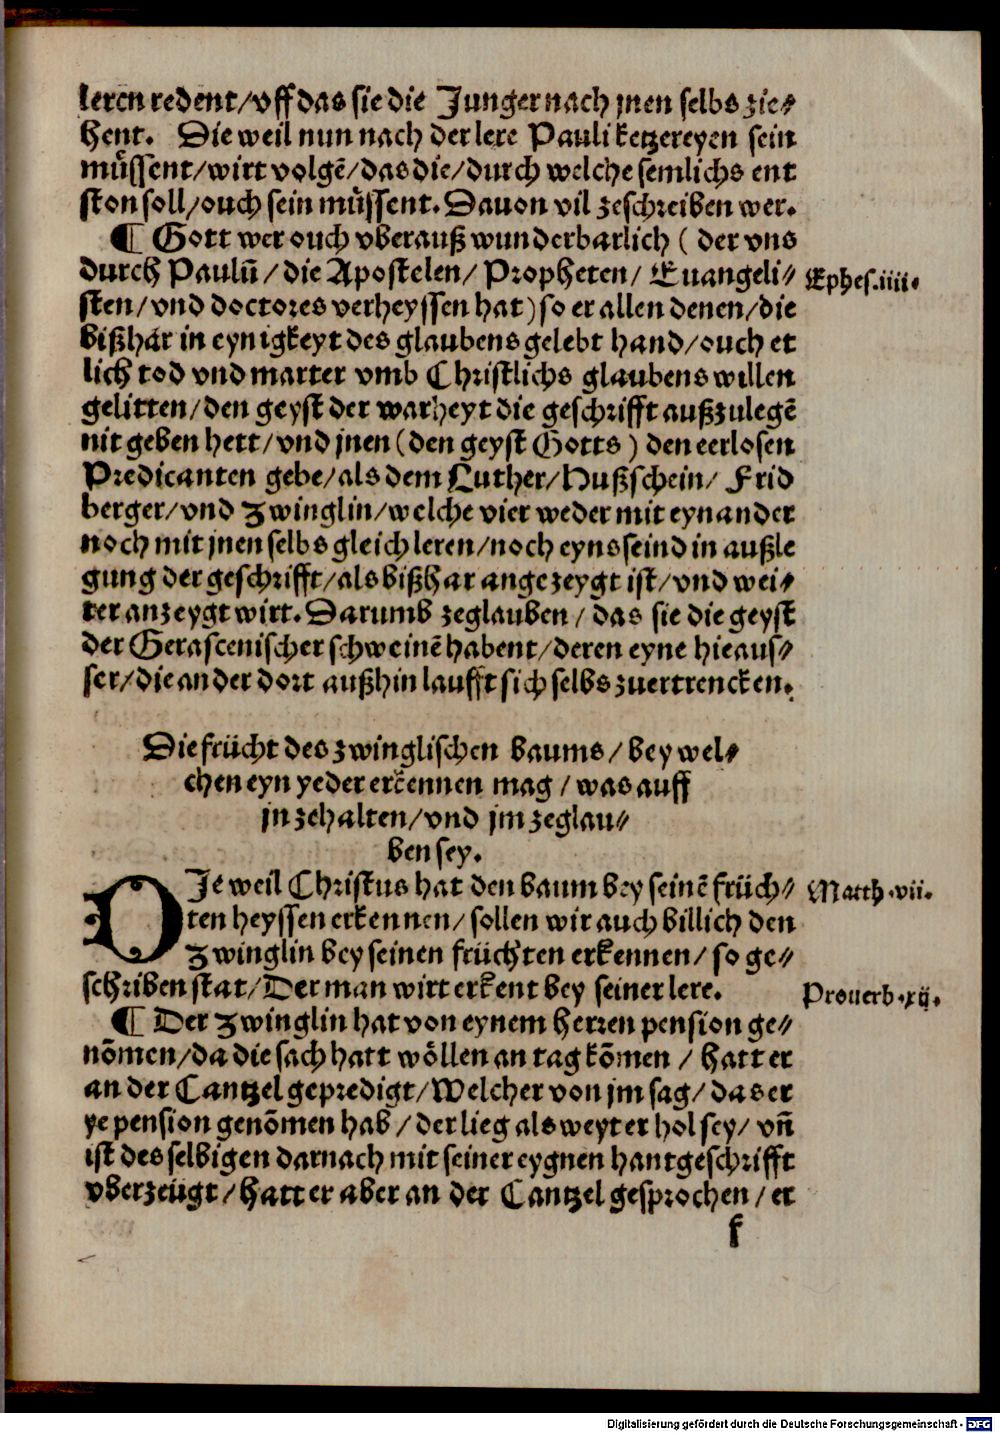 leren redent/vff das sie die Junger nach jnen selbs zie⸗
hent. Die weil nun nach der lere Pauli ketzereyen sein
müssent/wirt volgē/das die/durch welche semlichs ent
ston soll/ouch sein müssent. Dauon vil zeschreiben wer.
¶ Gott wer ouch vberauß wunderbarlich ( der vns
durch Paulū/die Apostelen/Propheten/Euangeli⸗
Ephes.iiii.
sten/vnd doctores verheyssen hat) so er allen denen/die
bißhár in eynigkeyt des glaubens gelebt hand/ouch et
lich tod vnd marter vmb Christlichs glaubens willen
gelitten/den geyst der warheyt die geschrifft außzulegē
nit geben hett/vnd jnen (den geyst Gotts ) den eerlosen
Predicanten gebe/als dem Luther/Hußschein/ Frid
berger/vnd Zwinglin/welche vier weder mit eynander
noch mit jnen selbs gleich leren/noch eyns seind in außle
gung der geschrifft/als bißhar angezeygt ist/vnd wei⸗
ter anzeygt wirt. Darumb zeglauben/ das sie die geyst
der Gerascenischer schweinē habent/deren eyne hieaus⸗
ser/die ander dort außhin laufft sich selbs zuertrencken.
Die frücht des zwinglischen baums/bey wel⸗
chen eyn yeder erkennen mag/was auff
jn zehalten/vnd jm zeglau⸗
ben sey.
DJe weil Christus hat den baum bey seinē früch⸗
Matth.vii.
ten heyssen erkennen/sollen wir auch billich den
Zwinglin bey seinen früchten erkennen/so ge⸗
schriben stat/Der man wirt erkent bey seiner lere.
Prouerb.xij.
¶ Der Zwinglin hat von eynem Herren pension ge⸗
nōmen/da die sach hatt wöllen an tag kōmen/ hatt er
an der Cantzel gepredigt/Welcher von jm sag/das er
ye pension genōmen hab/der lieg als weyt er hol sey/vñ
ist des selbigen darnach mit seiner eygnen hantgeschrifft
vberzeügt/hatt er aber an der Cantzel gesprochen/er
f
Digitalisierung gefördert durch die Deutsche Forschungsgemeinschaft - DFG